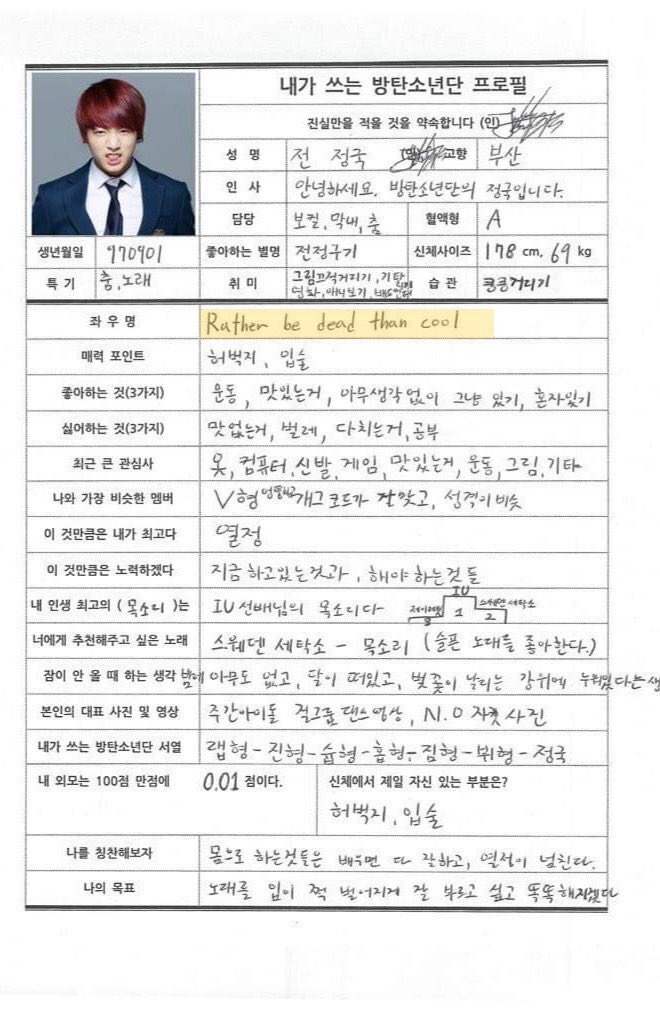 내가 쓰는 방탄소년단 프로필
진실만을 적을 것을 약속합니다 (인)
성 명 전 정국 고향 부산
인 사 안녕하세요. 방탄소년단의 정국입니다.
담당 보컬, 막내, 춤 혈액형 A
생년월일 970901 좋아하는 별명 전정구기 신체사이즈 178 cm, 69 kg
특 기 춤,노래 취 미 그림끄적거리기, 기타
영화, 애니보기, 습 관 킁킁거리기
좌 우 명 Rather be dead than cool
매력 포인트 허벅지, 입술
좋아하는 것(3가지) 운동, 맛있는거, 아무생각없이 그냥 있기, 혼자있기
싫어하는 것(3가지) 맛없는거, 벌레, 다치는거, 공부
최근 큰 관심사 옷, 컴퓨터, 신발, 게임, 맛있는거, 운동, 그림, 기타
나와 가장 비슷한 멤버 V형 개그코드가 잘맞고, 성격이 비슷
이 것만큼은 내가 최고다 열정
이 것만큼은 노력하겠다 지금 하고있는것과, 해야 하는것들
내 인생 최고의 ( 목소리 )는 IU선배님의 목소리다 IU 1 스웨덴세탁소 2 3
너에게 추천해주고 싶은 노래 스웨덴 세탁소 - 목소리 (슬픈 노래를 좋아한다.)
잠이 안 올 때 하는 생각 밤에 아무도 없고, 달이 떠있고, 벚꽃이 날리는 강위에 누워있다는 생
본인의 대표 사진 및 영상 주간아이돌 걸그룹댄스영상, N.O 자켓사진
내가 쓰는 방탄소년단 서열 랩형-진형-슙형-홉형-짐형-뷔형-정국
내 외모는 100점 만점에 0.01 점이다. 신체에서 제일 자신 있는 부분은?
허벅지, 입술
나를 칭찬해보자 몸으로 하는것들은 배우면 다 잘하고, 열정이 넘친다.
나의 목표 노래를 입이 쩍 벌어지게 잘 부르고 싶고 똑똑해지겠다